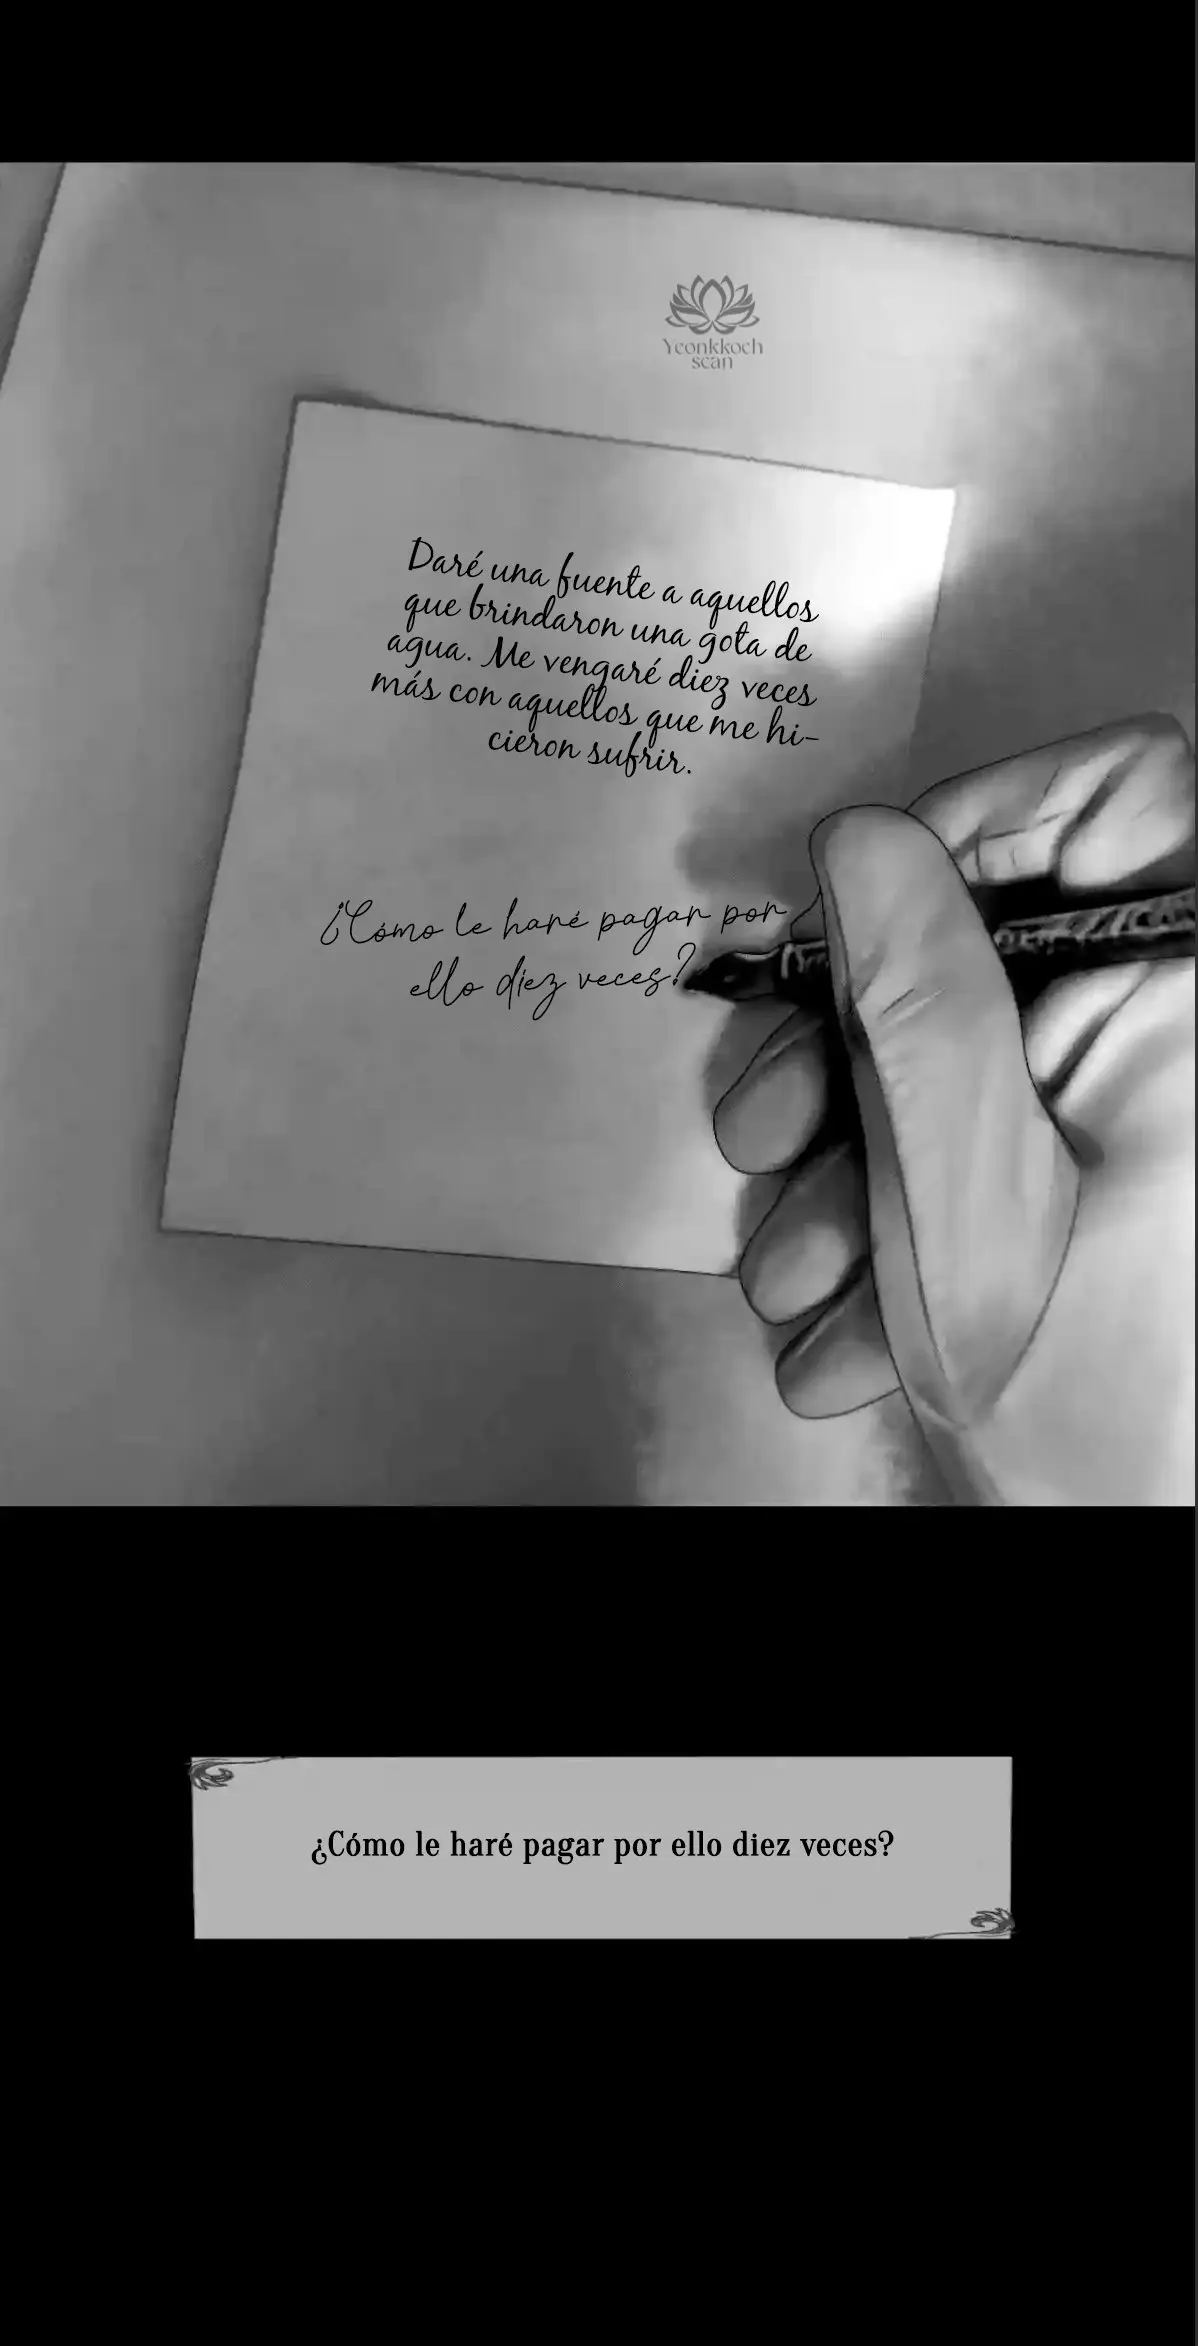 Yeonkkoch
scan
Daré una fuente a aquellos
que brindaron una gota de
agua. Me vengaré diez veces
más con aquellos que me hi-
cieron sufrir.
¿Cómo le haré pagar por
ello diez veces?
¿Cómo le haré pagar por ello diez veces?